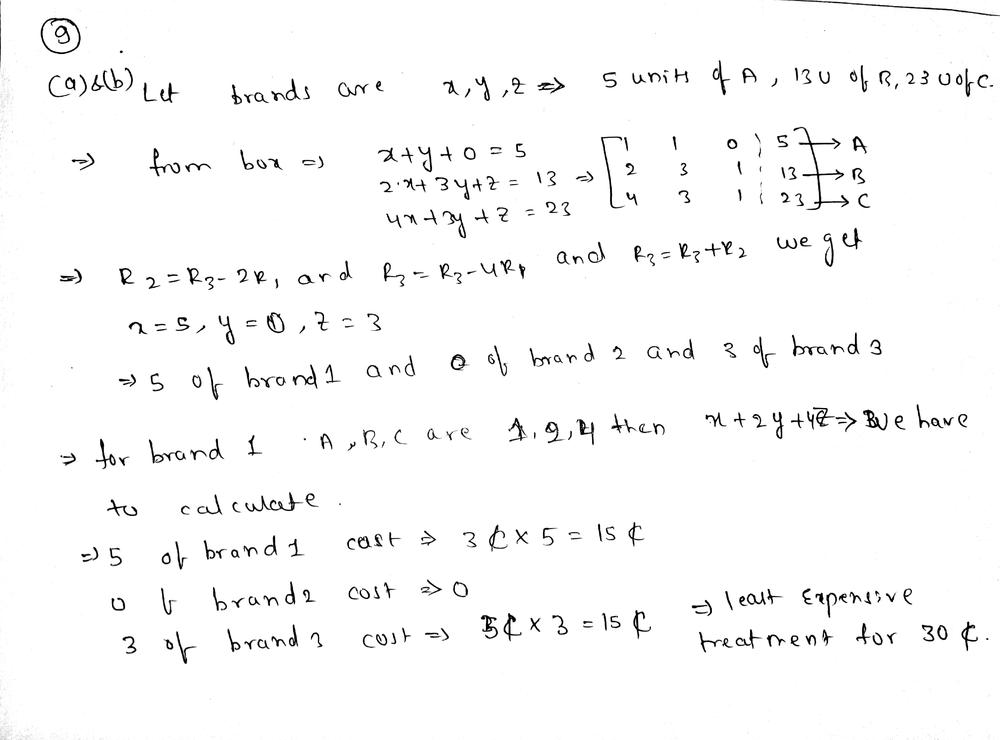 9
(a)&(b) Let brands are x, y, z ⇒ 5 units of A, 13 U of B, 23 U of C.
⇒ from box ⇒ x+y+0 = 5
2·x+3y+z = 13 ⇒
4x+3y+z = 23
[1 1 0 | 5] → A
[2 3 1 | 13] → B
[4 3 1 | 23] → C
⇒ R2 = R3 - 2R1 and R3 = R3 - 4R1 and R3 = R3 + R2 we get
x = 5, y = 0, z = 3
⇒ 5 of brand 1 and 0 of brand 2 and 3 of brand 3
⇒ for brand 1 A, B, C are 1, 2, 4 then x+2y+4z ⇒ We have
to calculate.
⇒ 5 of brand 1 cast ⇒ 3 ¢ × 5 = 15 ¢
0 of brand 2 cost ⇒ 0
3 of brand 3 cost ⇒ 5¢ × 3 = 15 ¢ ⇒ least Expensive
treatment for 30 ¢.